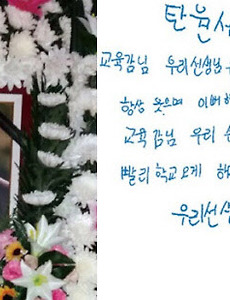 탄원서
교육감님 우리선생님
항상 웃으며
교육감님 우리
빨리 학교오게
우리선생